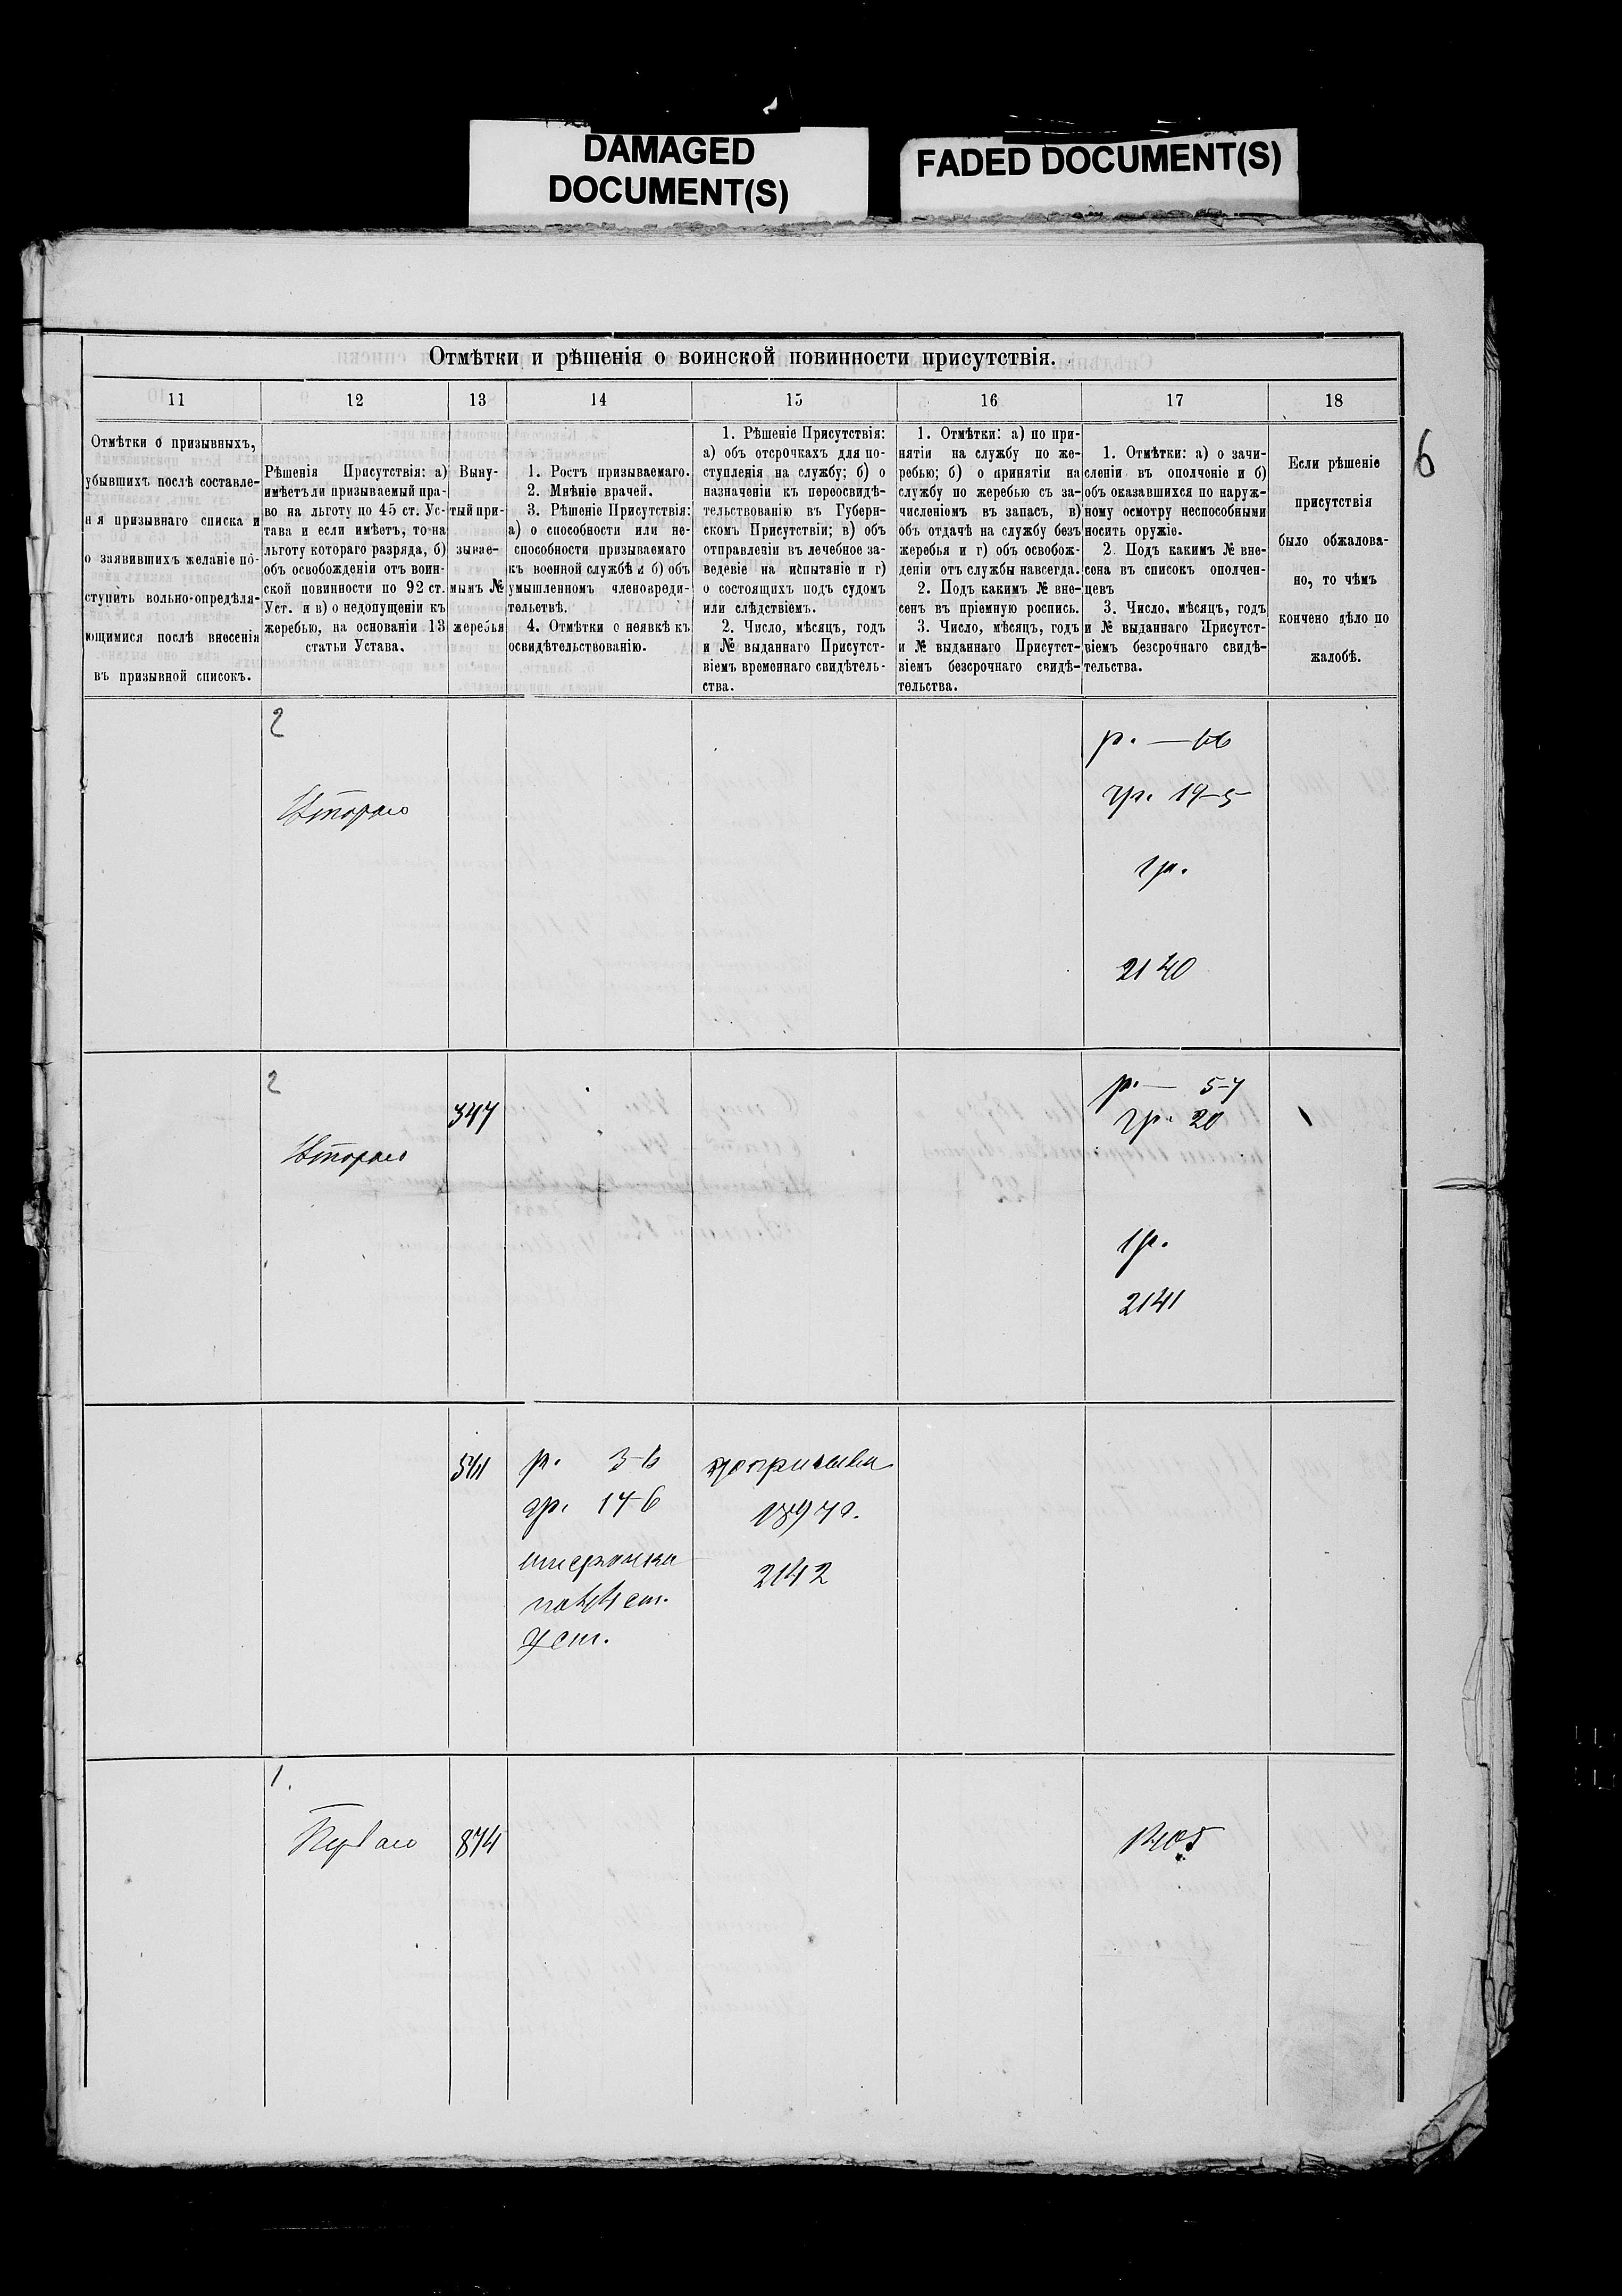 DAMAGED
DOCUMENT(S)
FADED DOCUMENT(S)
6
Отмѣтки и рѣшенія о воинской повинности присутствія.
11
12
13
14
15
16
17
18
Отмѣтки о призывныхъ,
убывшихъ послѣ составле-
нія призывнаго списка и
о заявившихъ желаніе по-
ступить вольно-опредѣля-
ющимися послѣ внесенія
въ призывной списокъ.
Рѣшенія Присутствія: а)
имѣетъ ли призываемый пра-
во на льготу по 45 ст. Ус-
тава и если имѣетъ, то на
льготу котораго разряда, б)
объ освобожденіи отъ воин-
ской повинности по 92 ст.
Уст. и в) о недопущеніи къ
жеребью, на основаніи 13
статьи Устава.
Выну-
тый при-
зывае-
мымъ №
жеребья
1. Ростъ призываемаго.
2. Мнѣніе врачей.
3. Рѣшеніе Присутствія:
а) о способности или не-
способности призываемаго
къ военной службѣ и б) объ
умышленномъ членовреди-
тельствѣ.
4. Отмѣтки о неявкѣ къ
освидѣтельствованію.
1. Рѣшеніе Присутствія:
а) объ отсрочкахъ для по-
ступленія на службу; б) о
назначеніи къ переосвидѣ-
тельствованію въ Губерн-
скомъ Присутствіи; в) объ
отправленіи въ лечебное за-
веденіе на испытаніе и г)
о состоящихъ подъ судомъ
или слѣдствіемъ.
2. Число, мѣсяцъ, годъ
и № выданнаго Присутст-
віемъ временнаго свидѣтель-
ства.
1. Отмѣтки: а) по при-
нятіи на службу по же-
ребью; б) о принятіи на
службу по жеребью съ за-
численіемъ въ запасъ, в)
объ отдачѣ на службу безъ
жеребья и г) объ освобож-
деніи отъ службы навсегда.
2. Подъ какимъ № вне-
сенъ въ пріемную роспись.
3. Число, мѣсяцъ, годъ
и № выданнаго Присутст-
віемъ безсрочнаго свидѣ-
тельства.
1. Отмѣтки: а) о зачи-
сленіи въ ополченіе и б)
объ оказавшихся по наруж-
ному осмотру неспособными
носить оружіе.
2. Подъ какимъ № вне-
сена въ списокъ ополчен-
цевъ
3. Число, мѣсяцъ, годъ
и № выданнаго Присутст-
віемъ безсрочнаго свидѣ-
тельства.
Если рѣшеніе
присутствія
было обжалова-
но, то чѣмъ
кончено дѣло по
жалобѣ.
2
Втораго
р. —
гр. 19-5
1р.
2140
2
Втораго
347
р. — 5-7
гр. 20
1р.
2141
541
р. 3-
гр. 17-6
отсрочка
по 44 ст.
Уст.
до призыва
1897 г.
2142
1.
Перваго
874
1405